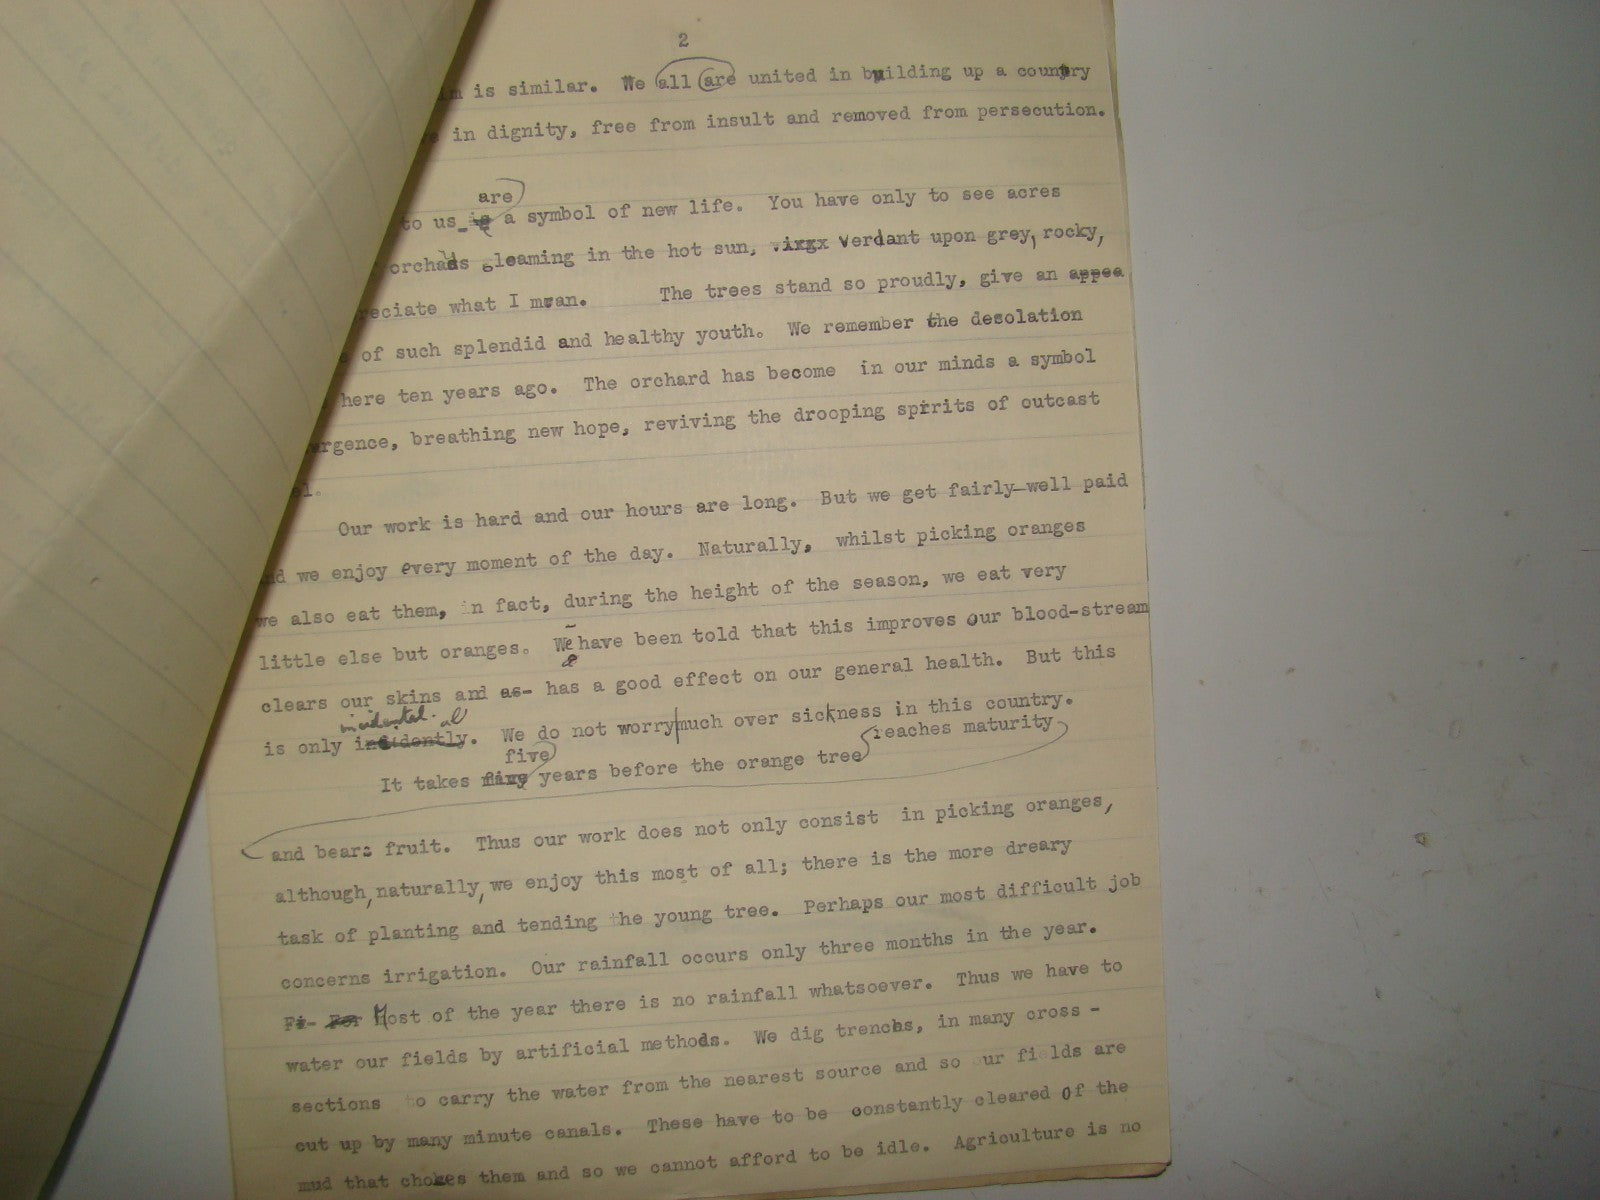 2
is similar. We all are united in building up a country
in dignity, free from insult and removed from persecution.
are
to us is a symbol of new life. You have only to see acres
orchards gleaming in the hot sun, virgx verdant upon grey, rocky,
reciate what I mean. The trees stand so proudly, give an appea
of such splendid and healthy youth. We remember the desolation
here ten years ago. The orchard has become in our minds a symbol
urgence, breathing new hope, reviving the drooping spirits of outcast
el.
Our work is hard and our hours are long. But we get fairly-well paid
nd we enjoy every moment of the day. Naturally, whilst picking oranges
we also eat them, in fact, during the height of the season, we eat very
little else but oranges. We have been told that this improves our blood-stream
clears our skins and as- has a good effect on our general health. But this
incidental. al
is only incidently. We do not worry much over sickness in this country.
five reaches maturity
It takes five years before the orange tree
and bears fruit. Thus our work does not only consist in picking oranges,
although, naturally, we enjoy this most of all; there is the more dreary
task of planting and tending the young tree. Perhaps our most difficult job
concerns irrigation. Our rainfall occurs only three months in the year.
Fr- For Most of the year there is no rainfall whatsoever. Thus we have to
water our fields by artificial methods. We dig trenchs, in many cross -
sections to carry the water from the nearest source and so our fields are
cut up by many minute canals. These have to be constantly cleared of the
mud that chokes them and so we cannot afford to be idle. Agriculture is no